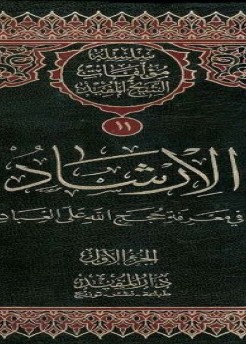 سلسلة
مؤلفات
الشيخ المفيد
١١
الإرشاد
في معرفة حجج الله على العباد
الجزء الأول
دار المفيد
طباعة - نشر - توزيع